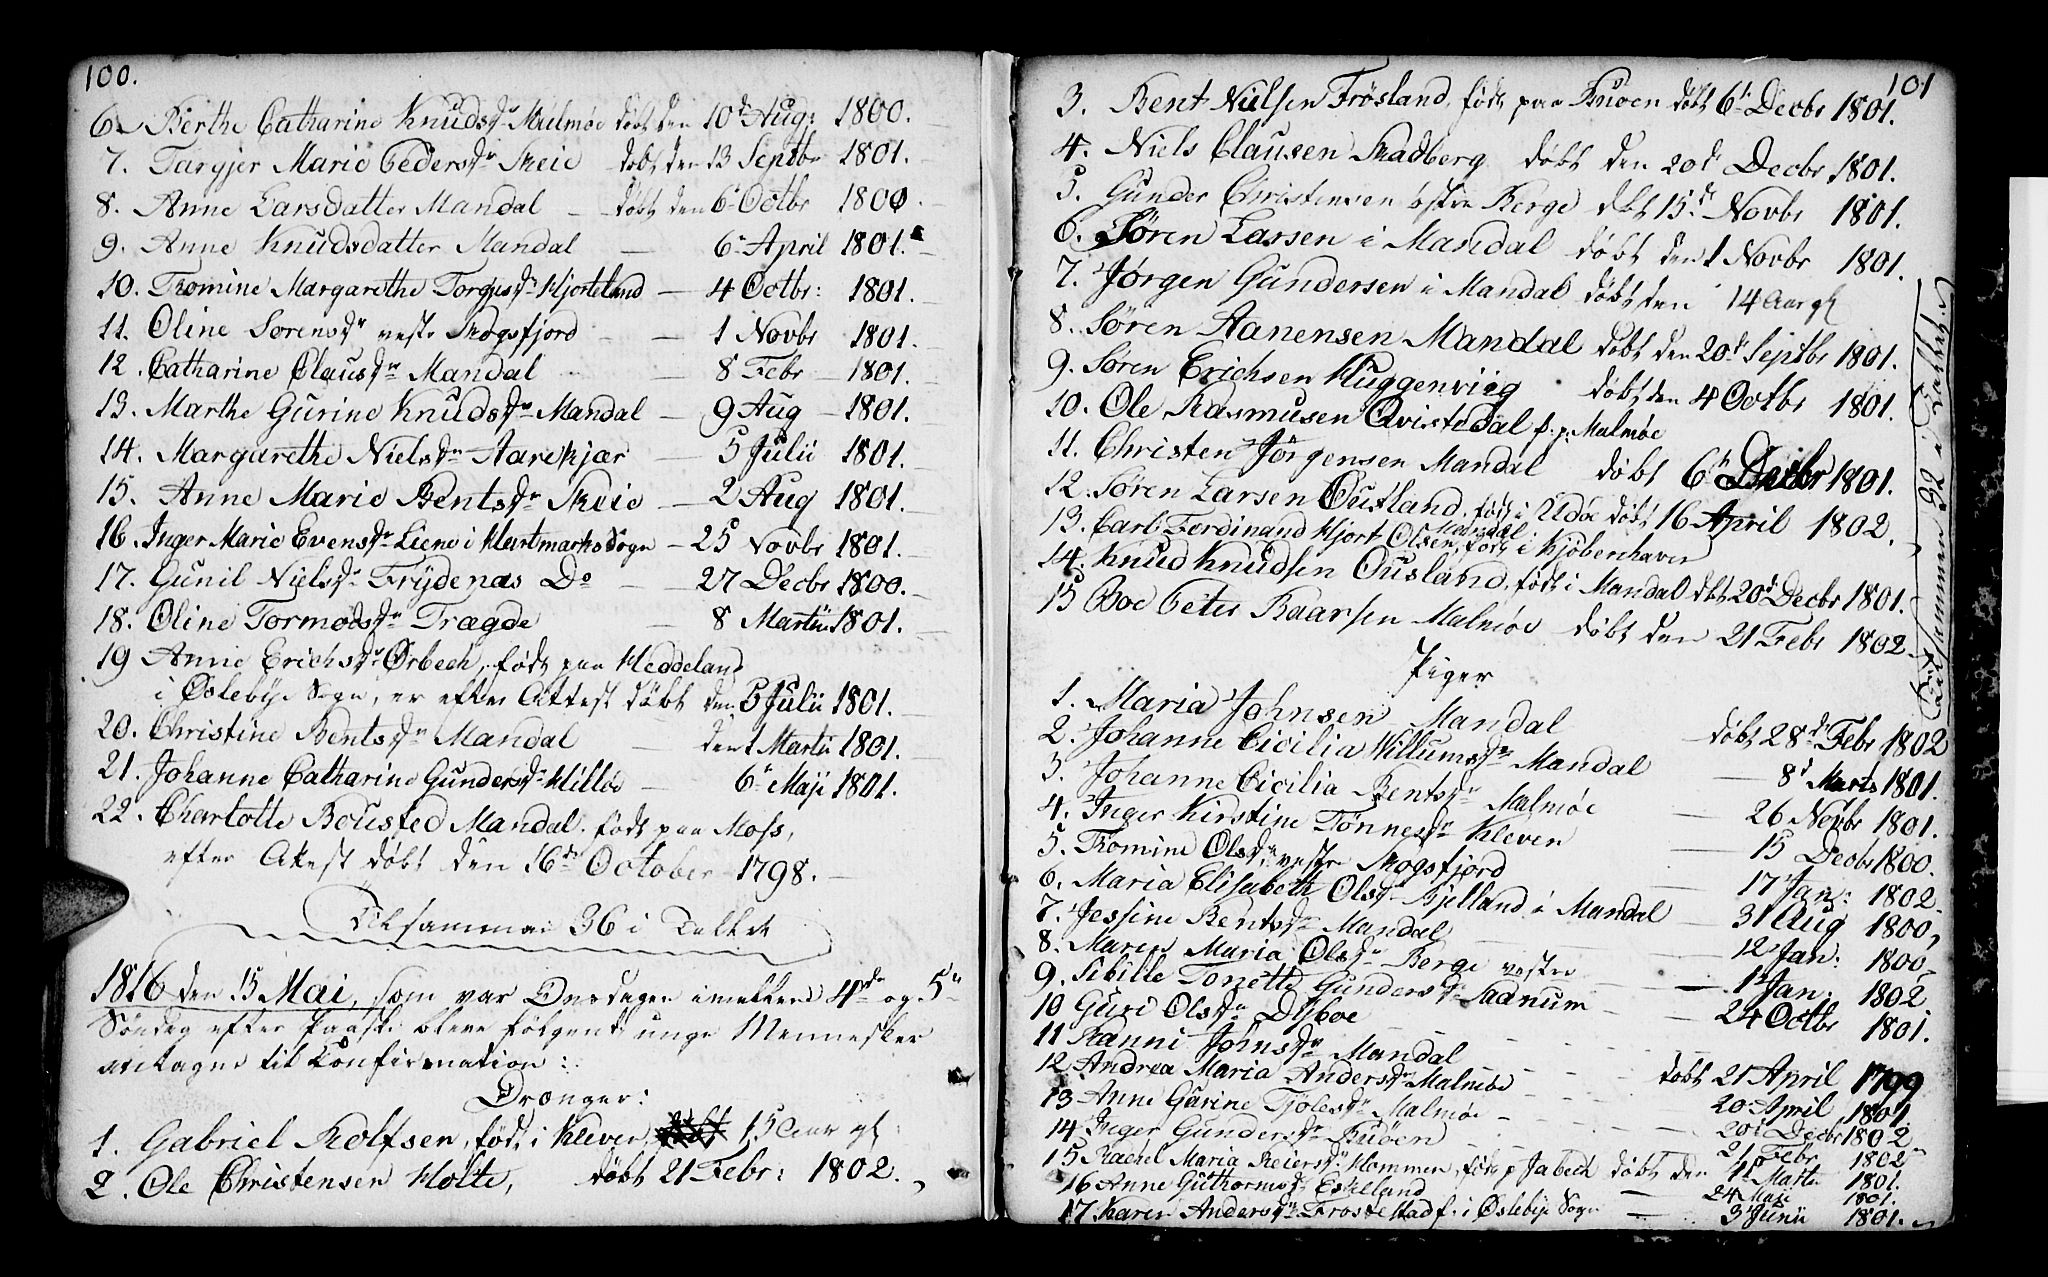 100.
6. Berthe Catharine Knudsdr Malmøe døbt den 10de Aug: 1800.
7. Targjer Marie Pedersdr Skeie døbt den 13 Septbr 1801.
8. Anne Larsdatter Mandal døbt den 6 Octbr 1800.
9. Anne Knudsdatter Mandal — 6 April 1801.
10. Tomine Margarethe Torgusdr Hjorteland — 4 Octbr: 1801.
11. Oline Sorensdr vestre Skogsfjord — 1 Novbr 1801.
12. Catharine Clausdr Mandal — 8 Febr — 1801.
13. Marthe Gurine Knudsdr Mandal — 9 Aug — 1801.
14. Margarethe Nielsdr Aarekjær — 5 Julii 1801.
15. Anne Marie Bentsdr Skeie — 2 Aug 1801.
16. Inger Marie Evensdr Liene i Hartmarks Sogn — 25 Novbr 1801.
17. Gunil Nielsdr Frydenas Do — 27 Decbr 1800.
18. Oline Tormodsdr Trægde — 8 Martii 1801.
19 Anne Erichsdr Ørbech, født paa Heddeland
i Øslebye Sogn, er efter Attest døbt den 5 Julii 1801.
20. Christine Bentsdr Mandal — den 1 Martii 1801.
21. Johanne Catharine Gundersdr Hilløe — 6 Maji 1801.
22. Charlotte Bousted Mandal, født paa Moss,
efter Attest døbt den 16de October 1798.
Tilsammen 36 i Tallet
1816 den 15 Mai, som var Onsdagen imellem 4de og 5te
Søndag efter Paaske bleve følgende unge Mennesker
antagne til Confirmation:
Drænger:
1. Gabriel Rolfsen, født i Kleven, 15 Aar gl:
2. Ole Christensen Holte, døbt 21 Febr: 1802.
101
3. Bent Nielsen Frøsland, født paa Buøen døbt 6 Decbr 1801.
4. Niels Clausen Skadberg døbt den 20de Decbr 1801.
5. Gunder Christensen østre Berge dbt 15de Novbr 1801.
6. Søren Larsen i Mandal døbt den 1 Novbr 1801.
7. Jørgen Gundersen i Mandal døbt den 14 Aar gl
8. Søren Aanensen Mandal døbt den 20de Septbr 1801.
9. Søren Erichsen Huggenviig døbt den 4 Octbr 1801.
10. Ole Rasmusen Qvistedal f. p. Malmøe
11. Christen Jørgensen Mandal døbt 6te Decbr 1801.
12. Søren Larsen Ousland, født i Udøe døbt 16 April 1802.
13. Carl Ferdinand Hjort Olsen, Mandal født i Kjøbenhavn
14. Knud Knudsen Ousland, født i Mandal dbt 20de Decbr 1801.
15 Boe Peter Kaarsen Malmøe døbt den 21 Febr 1802.
Piger
1. Maria Johnsen Mandal døbt 28de Febr 1802
2. Johanne Cicilia Willumsdr Mandal — 8de Marts 1801.
3. Johanne Cicilia Bentsdr Malmøe — 26 Novbr 1801.
4. Inger Kirstine Tønnesdr Kleven — 15 Decbr 1800.
5. Tomine Olsdr, vestre Skogsfjord — 17 Jan: 1802.
6. Maria Elisabeth Olsdr Kjelland i Mandal — 31 Aug 1800,
7. Jessine Bentsdr Mandal — 12 Jan: 1800.
8. Maren Maria Olsdr Berge vestre — 1 Jan: 1802
9. Sibille Tonette Gundersdr Sadnum — 24 Octbr 1801.
10 Guri Olsdr Dyboe
11 Ranni Johnsdr Mandal døbt 21 April 1799
12 Andrea Maria Andersdr Malmøe 20 April 1801.
13 Anne Gurine Tjølesdr Malmøe 20 Decbr 1802
14 Inger Gundersdr Buøen 21 Febr 1802
15 Rachel Maria Reiersdr Hommen, født p Jabech døbt den 1 Martii 1801.
16 Anne Guthormsdr Eskelland — 24 Maji 1801.
17 Karen Andersdr Frøstestad f. i Øslebye Sogn — 3 Junii 1801.
Tilsammen 32 i Tallet